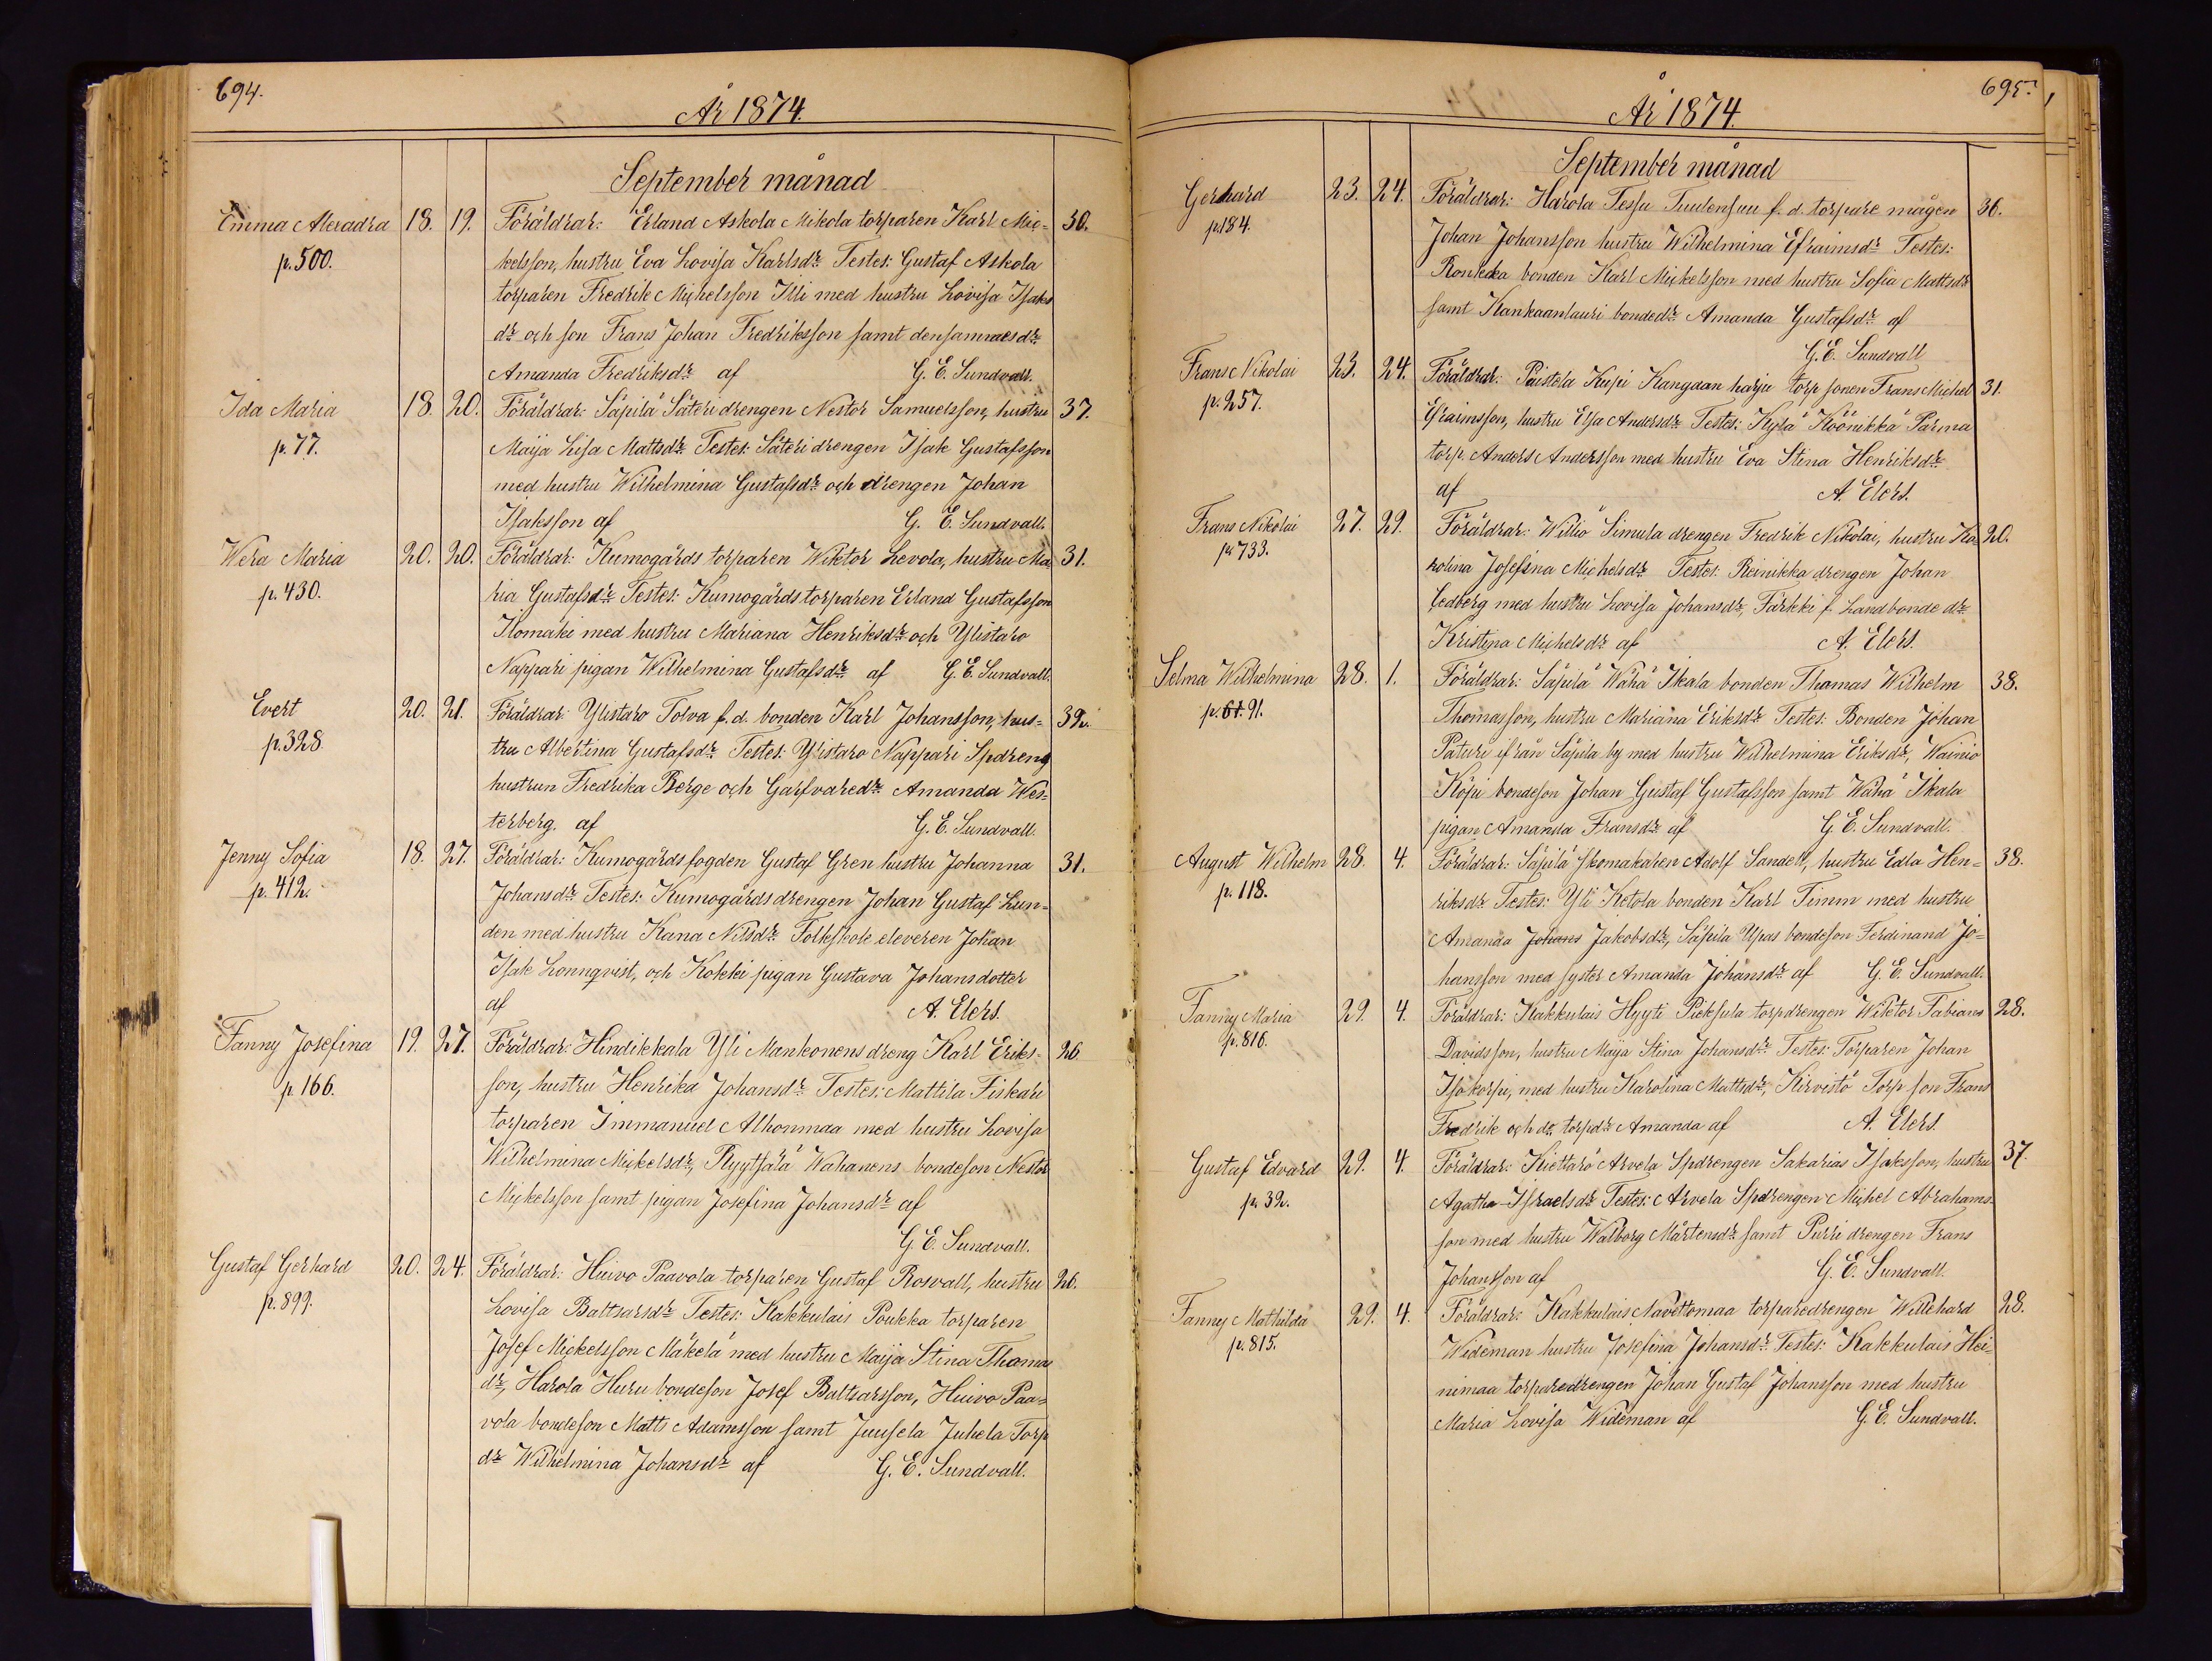 694.
År 1874.
September månad
Emma Alexadra 18. 19. Föräldrar: Erland Askola Mikola torparen Karl Mic- 30.
p. 500. kelsson, hustru Eva Lovisa Karlsdr Testes: Gustaf Askola
torparen Fredrik Michelsson Illi med hustru Lovisa Isaks
dr och son Frans Johan Fredriksson samt densammesdr
Amanda Fredriksdr af G. E. Sundvall.
Ida Maria 18. 20. Föräldrar: Säpilä Säteri drengen Nestor Samuelsson, hustru 37.
p. 77. Maija Lisa Mattsdr Testes: Säteri drengen Isak Gustafsson
med hustru Wilhelmina Gustafsdr och drengen Johan
Isaksson af G. E. Sundvall.
Wera Maria 20. 20. Föräldrar: Kumogårds torparen Wiktor Levola, hustru Ma- 31.
p. 430. ria Gustafsdr Testes: Kumogårds torparen Erland Gustafsson
Ilomäki med hustru Mariana Henriksdr och Ylistaro
Nappari pigan Wilhelmina Gustafsdr af G. E. Sundvall.
Evert 20. 21. Föräldrar: Ylistaro Tolva f. d. bonden Karl Johansson, hus- 32.
p. 328. tru Albertina Gustafsdr Testes: Ylistaro Nappari Spdreng
hustrun Fredrika Berge och Garfvaredr Amanda Wes-
terberg. af G. E. Sundvall.
Jenny Sofia 18. 27. Föräldrar: Kumogårds fogden Gustaf Gren hustru Johanna 31.
p. 412. Johansdr Testes: Kumogårds drengen Johan Gustaf Lun-
den med hustru Kana Nilsdr Folkskole eleveren Johan
Isak Lonnqvist, och Kokki pigan Gustava Johansdotter
af A. Elers.
Fanny Josefina 19. 27. Föräldrar: Hindikkala Yli Mankonens dreng Karl Eriks- 26
p. 166. son, hustru Henrika Johansdr Testes: Mattila Fiskari
torparen Immanuel Alhonmaa med hustru Lovisa
Wilhelmina Mickelsdr, Ryytsälä Wahanens bondeson Nestor
Mickelsson samt pigan Josefina Johansdr af
G. E. Sundvall.
Gustaf Gerhard 20. 24. Föräldrar: Huivo Paavola torparen Gustaf Rosvall, hustru 26.
p. 899. Lovisa Baltsarsdr Testes: Kakkulais Poukka torparen
Josef Mickelsson Mäkelä med hustru Maija Stina Thomas
dr, Harola Huru bondeson Josef Baltsarsson, Huivo Paa-
vola bondeson Matts Adamsson samt Juusela Juhela Torp
dr Wilhelmina Johansdr af G. E. Sundvall.
695.
År 1874.
September månad
Gerhard 23. 24. Föräldrar: Harola Tessu Tuulensuu f. d. torpare mågen 36.
p. 184. Johan Johansson hustru Wilhelmina Efraimsdr Testes:
Ronkka bonden Karl Mickelsson med hustru Sofia Mattsdr
samt Kankaanlauri bondedr Amanda Gustafsdr af
G. E. Sundvall
Frans Nikolai 23. 24. Föräldrar: Paistela Kupi Kangdan harju torp sonen Frans Michel 31.
p. 257. Efraimsson, hustru Elsa Andersdr Testes: Kylä Köönikkä Pärma
torp. Anders Andersson med hustru Eva Stina Henriksdr
af A. Elers.
Frans Nikolai 27. 29. Föräldrar: Williö Simula drengen Fredrik Nikolai, hustru Ka- 20.
p. 733. rolina Josefina Michelsdr Testes: Reinikka drengen Johan
Cedberg med hustru Lovisa Johansdr, Tärkki f. Landbonde dr
Kristina Michelsdr af A. Elers.
Selma Wilhelmina 28. 1. Föräldrar: Säpilä Wähä Ikala bonden Thomas Wilhelm 38.
p. 61. 91. Thomasson, hustru Mariana Eriksdr Testes: Bonden Johan
Paturi ifrån Säpilä by med hustru Wilhelmina Eriksdr, Wainio
Köpi bondeson Johan Gustaf Gustafsson samt Wähä Ikala
pigan Amanda Fransdr af G. E. Sundvall.
August Wilhelm 28. 4. Föräldrar: Säpilä skomakaren Adolf Sandell, hustru Edla Hen- 38.
p. 118. riksdr Testes: Yli Ketola bonden Karl Timm med hustru
Amanda Johans Jakobsdr, Säpilä Upas bondeson Ferdinand Jo-
hansson med syster Amanda Johansdr af G. E. Sundvall.
Fanny Maria 29. 4. Föräldrar: Kakkulais Hyyti Pieksula torpdrengen Wiktor Fabians 28.
p. 816. Davidsson, hustru Maija Stina Johansdr Testes: Torparen Johan
Isokorpi, med hustru Karolina Mattsdr, Kirvistö Torp son Frans
Fredrik och do torpdr Amanda af A. Elers.
Gustaf Edvard 29. 4. Föräldrar: Kiettarö Arvela Spdrengen Sakarias Isaksson, hustru 37.
p. 32. Agatha Israelsdr Testes: Arvela Spdrengen Michel Abrahams-
son med hustru Walborg Mårtensdr samt Purri drengen Frans
Johansson af G. E. Sundvall.
Fanny Mathilda 29. 4. Föräldrar: Kakkulais Navettomaa torparedrengen Willehard 28.
p. 815. Wideman hustru Josefina Johansdr Testes: Kakkulais Hei-
nimaa torparedrengen Johan Gustaf Johansson med hustru
Maria Lovisa Wideman af G. E. Sundvall.